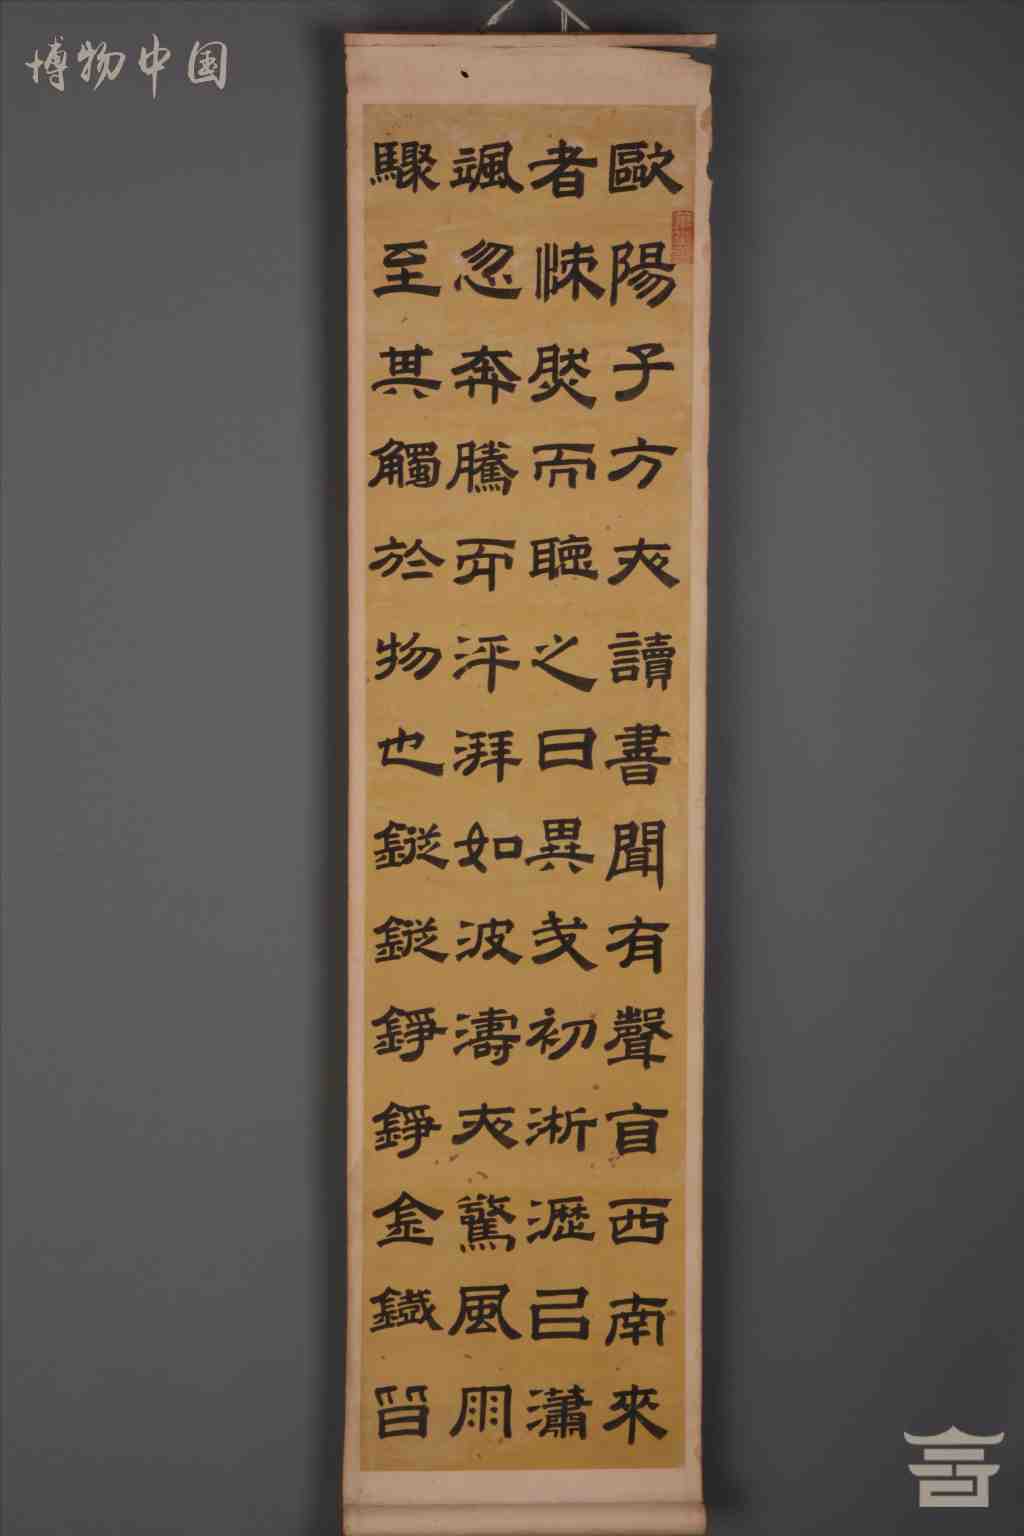 博物中国
歐陽子方夜讀書聞有聲自西南來
者悚然而聽之曰異哉初淅瀝已瀟
颯忽奔騰而泙湃如波濤夜驚風雨
驟至其觸於物也鏦鏦錚錚金鐵皆